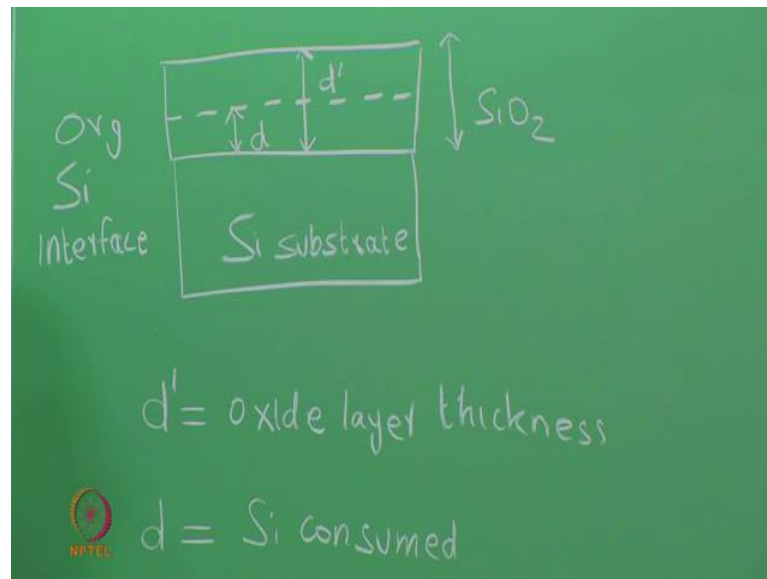 d'
SiO2
Org
Si
Interface
d
Si substrate
d' = oxide layer thickness
d = Si consumed
NPTEL